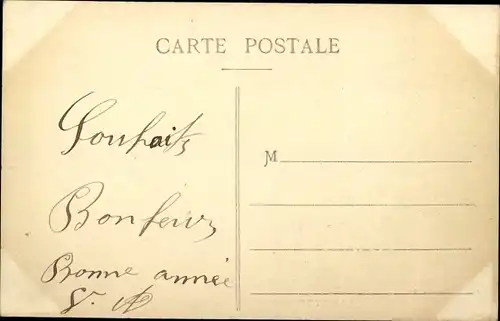 CARTE POSTALE
Souhaits
M
Bonheur
Bonne année